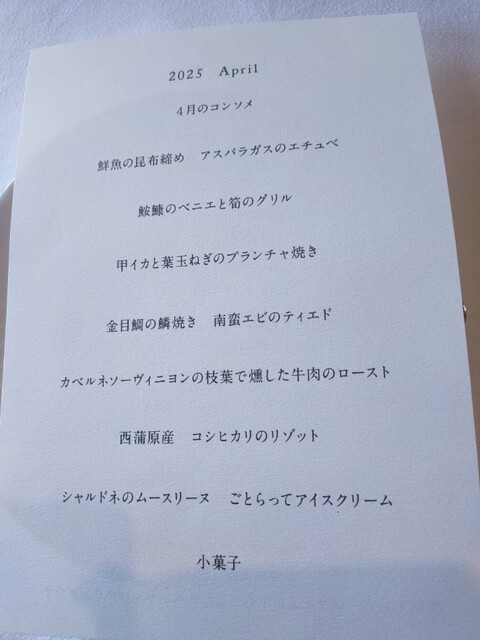 2025 April
4月のコンソメ
鮮魚の昆布締め アスパラガスのエチュベ
鮟鱇のベニエと筍のグリル
甲イカと葉玉ねぎのプランチャ焼き
金目鯛の鱗焼き 南蛮エビのティエド
カベルネソーヴィニヨンの枝葉で燻した牛肉のロースト
西蒲原産 コシヒカリのリゾット
シャルドネのムースリーヌ ごとらってアイスクリーム
小菓子